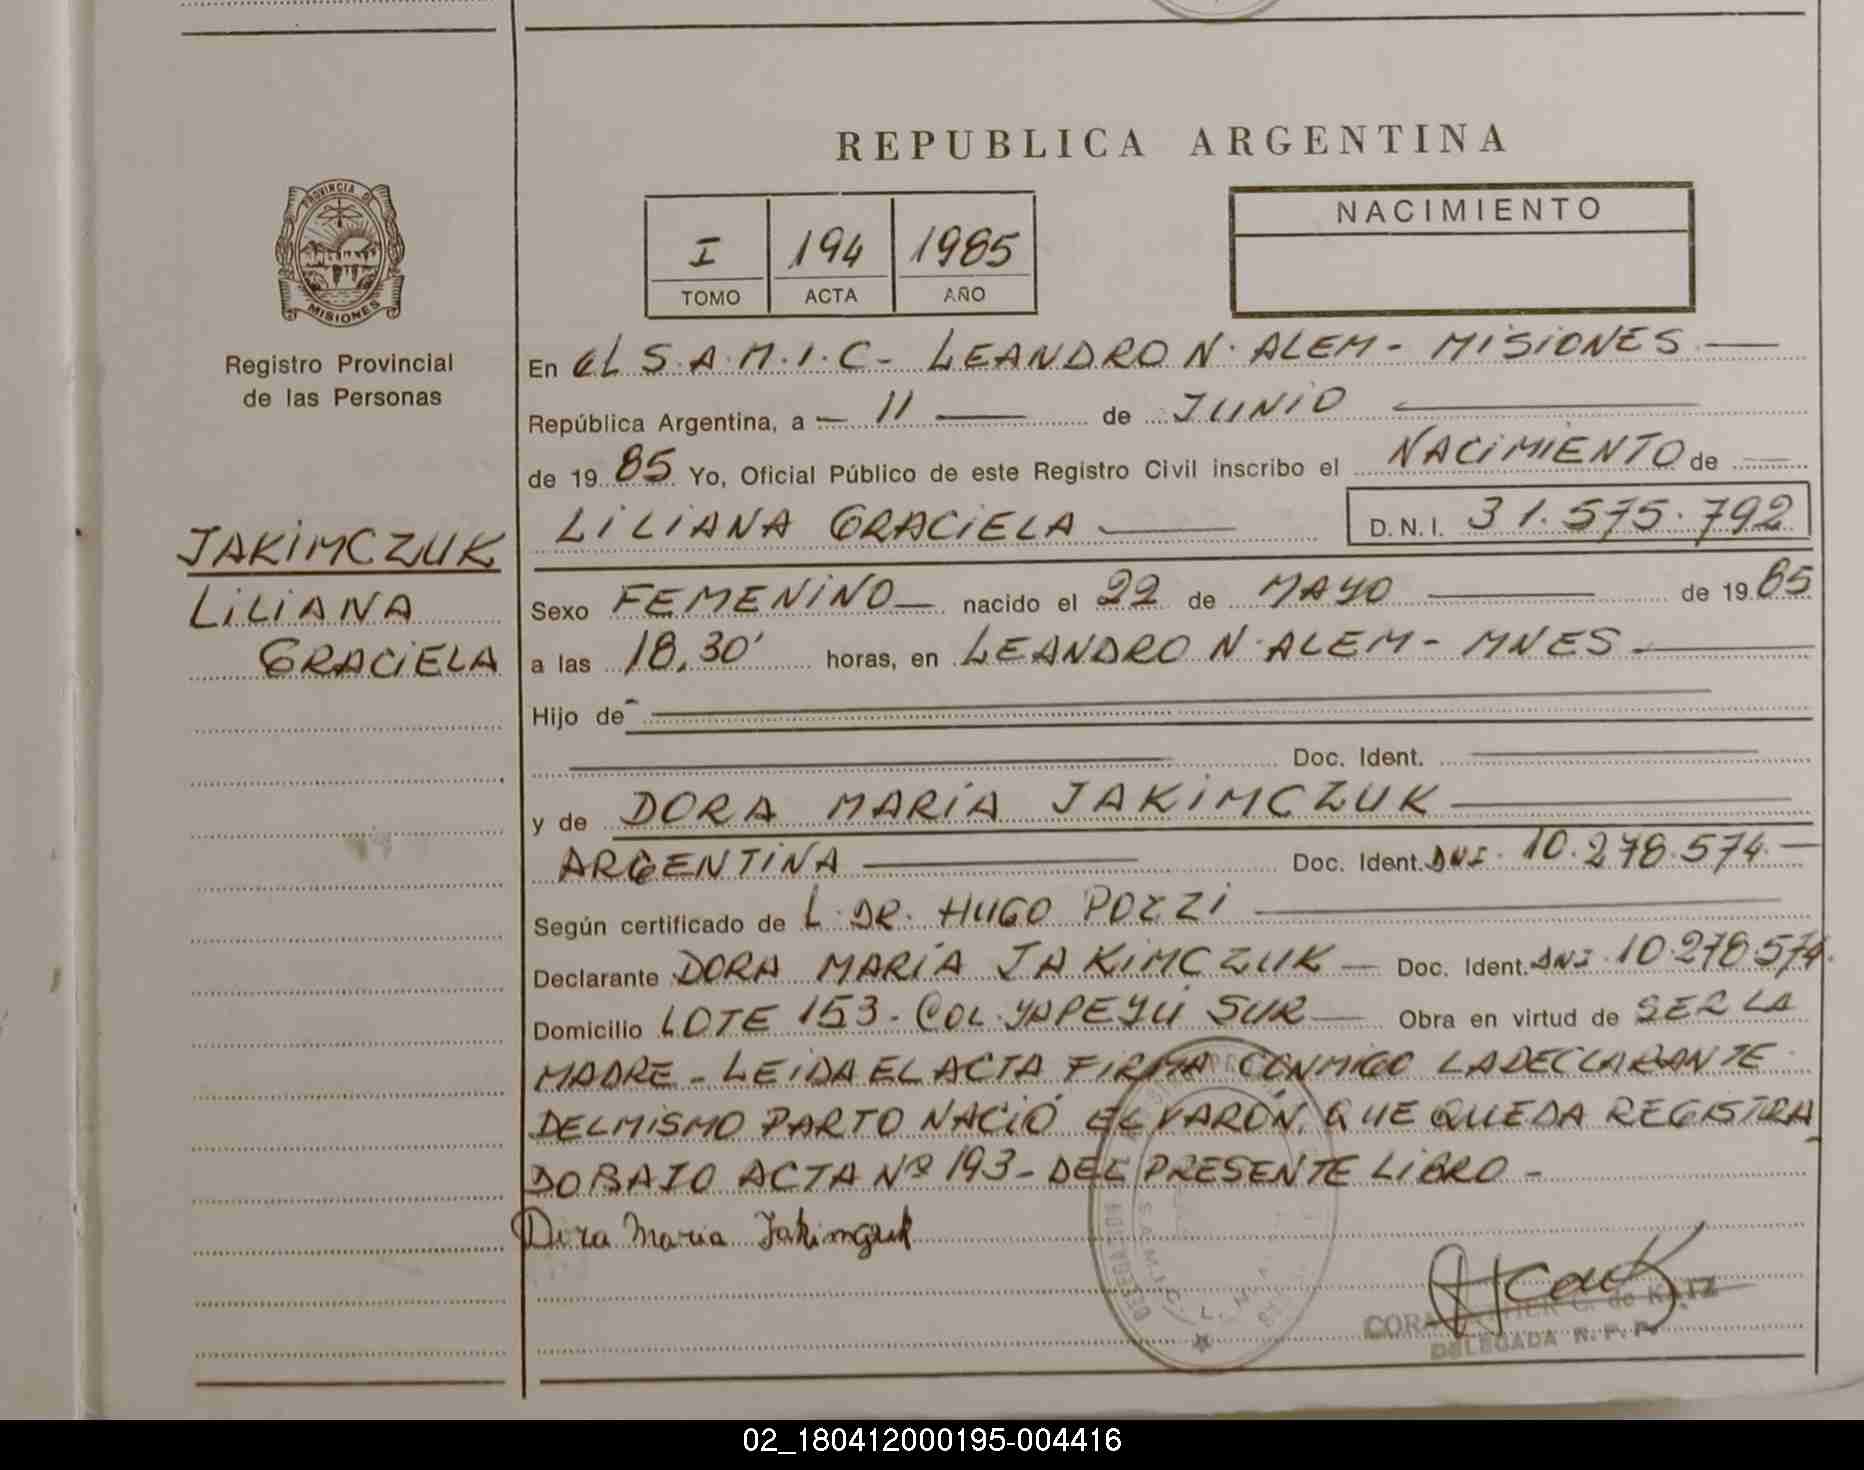 REPUBLICA ARGENTINA
PROVINCIA DE MISIONES
Registro Provincial
de las Personas
I 194 1985
TOMO ACTA AÑO
NACIMIENTO
En el S.A.M.I.C- LEANDRO N. ALEM - MISIONES
República Argentina, a - 11 de JUNIO
de 19 85 Yo, Oficial Público de este Registro Civil inscribo el NACIMIENTO de
LILIANA GRACIELA D.N.I. 31.575.792
JAKIMCZUK
LILIANA
GRACIELA
Sexo FEMENINO nacido el 22 de MAYO de 19 85
a las 18,30' horas, en LEANDRO N. ALEM - MNES
Hijo de
Doc. Ident.
y de DORA MARÍA JAKIMCZUK
ARGENTINA Doc. Ident. DNI. 10.278.574.
Según certificado de L. DR. HUGO POZZI
Declarante DORA MARÍA JAKIMCZUK Doc. Ident. DNI. 10.278.574.
Domicilio LOTE 153 - COL. YAPEYÚ SUR Obra en virtud de SER LA
MADRE - LEIDA EL ACTA FIRMA CONMIGO LA DECLARANTE
DEL MISMO PARTO NACIÓ EL VARÓN, QUE QUEDA REGISTRA
DO BAJO ACTA Nº 193 - DEL PRESENTE LIBRO -
Dora Maria Jakimczuk
de KATZ
DELEGADA R. P. P.
02_180412000195-004416